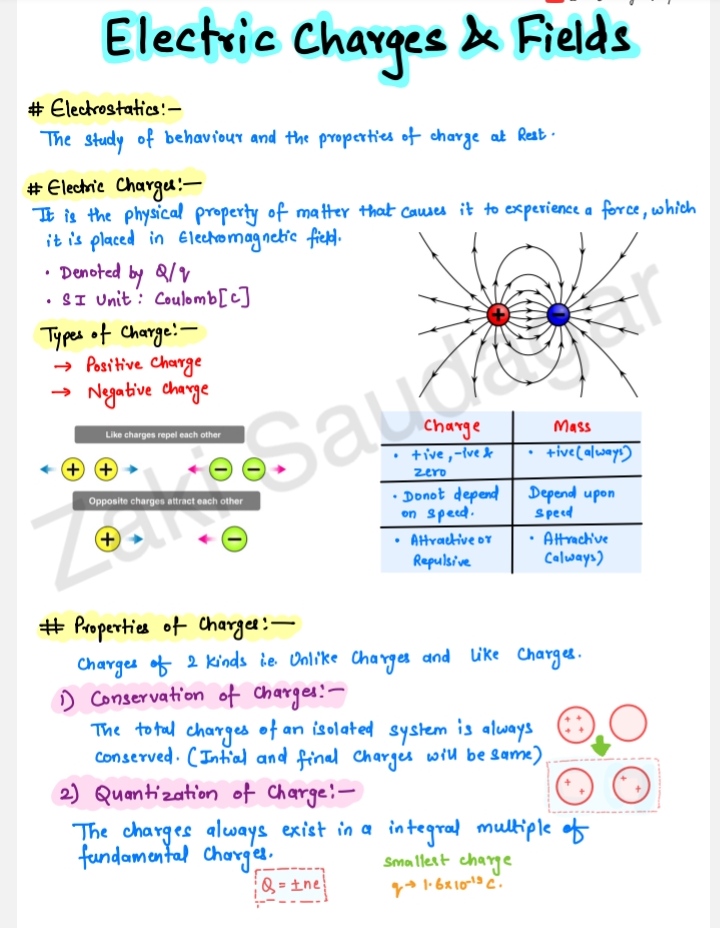 Electric Charges & Fields
# Electrostatics:-
The study of behaviour and the properties of charge at Rest.
# Electric Charges:-
It is the physical property of matter that causes it to experience a force, which
it is placed in Electromagnetic field.
• Denoted by Q/q
• SI Unit : Coulomb[C]
Types of Charge:-
→ Positive Charge
→ Negative Charge
+
−
Like charges repel each other
+ + − −
Opposite charges attract each other
+ −
Charge Mass
• +ive, -ive & • +ive(always)
zero
• Donot depend Depend upon
on speed. speed
• Attractive or • Attractive
Repulsive (always)
Zaki Saudagar
# Properties of Charges:-
Charges of 2 kinds i.e. Unlike Charges and Like Charges.
1) Conservation of Charges:-
The total charges of an isolated system is always
conserved. (Intial and final Charges will be same)
+ +
+ +
+ + + +
2) Quantization of Charge:-
The charges always exist in a integral multiple of
fundamental Charges.
Smallest charge
Q = ±ne
q → 1.6x10⁻¹⁹ C.